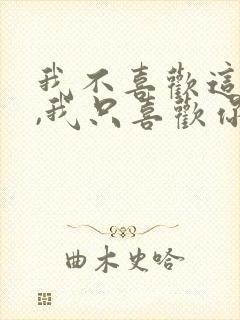 我不喜歡這
,我只喜歡你
曲木史哈